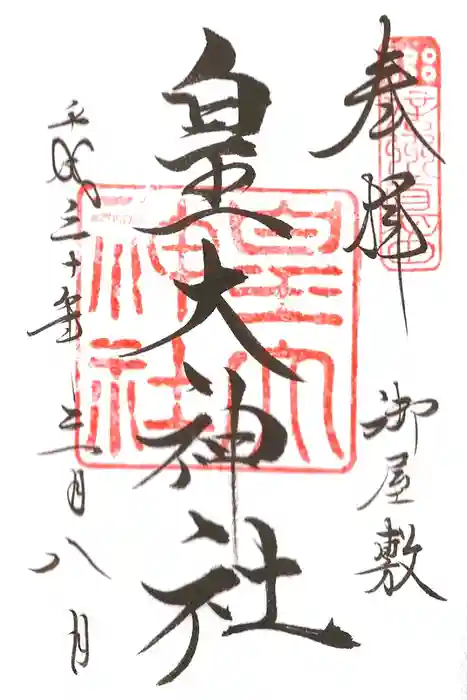 奉拝
御屋敷
皇大神社
皇大
神社
平成三十年三月八日